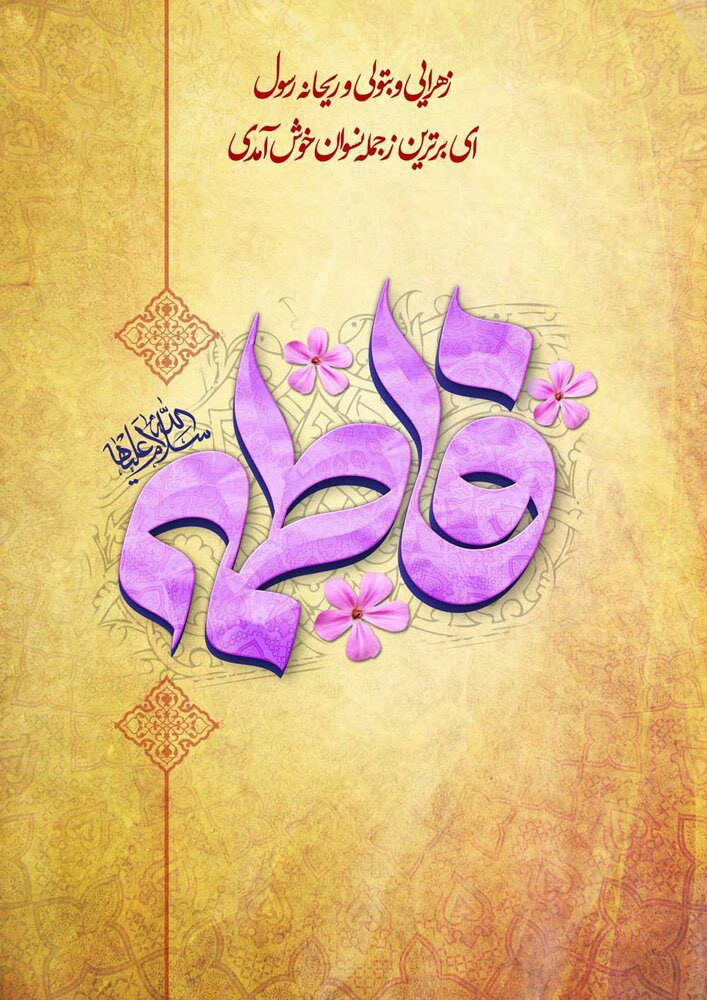 زهرایی و بتولی و ریحانه رسول
ای برترین ز جمله نسوان خوش آمدی
فاطمه
سلام الله علیها